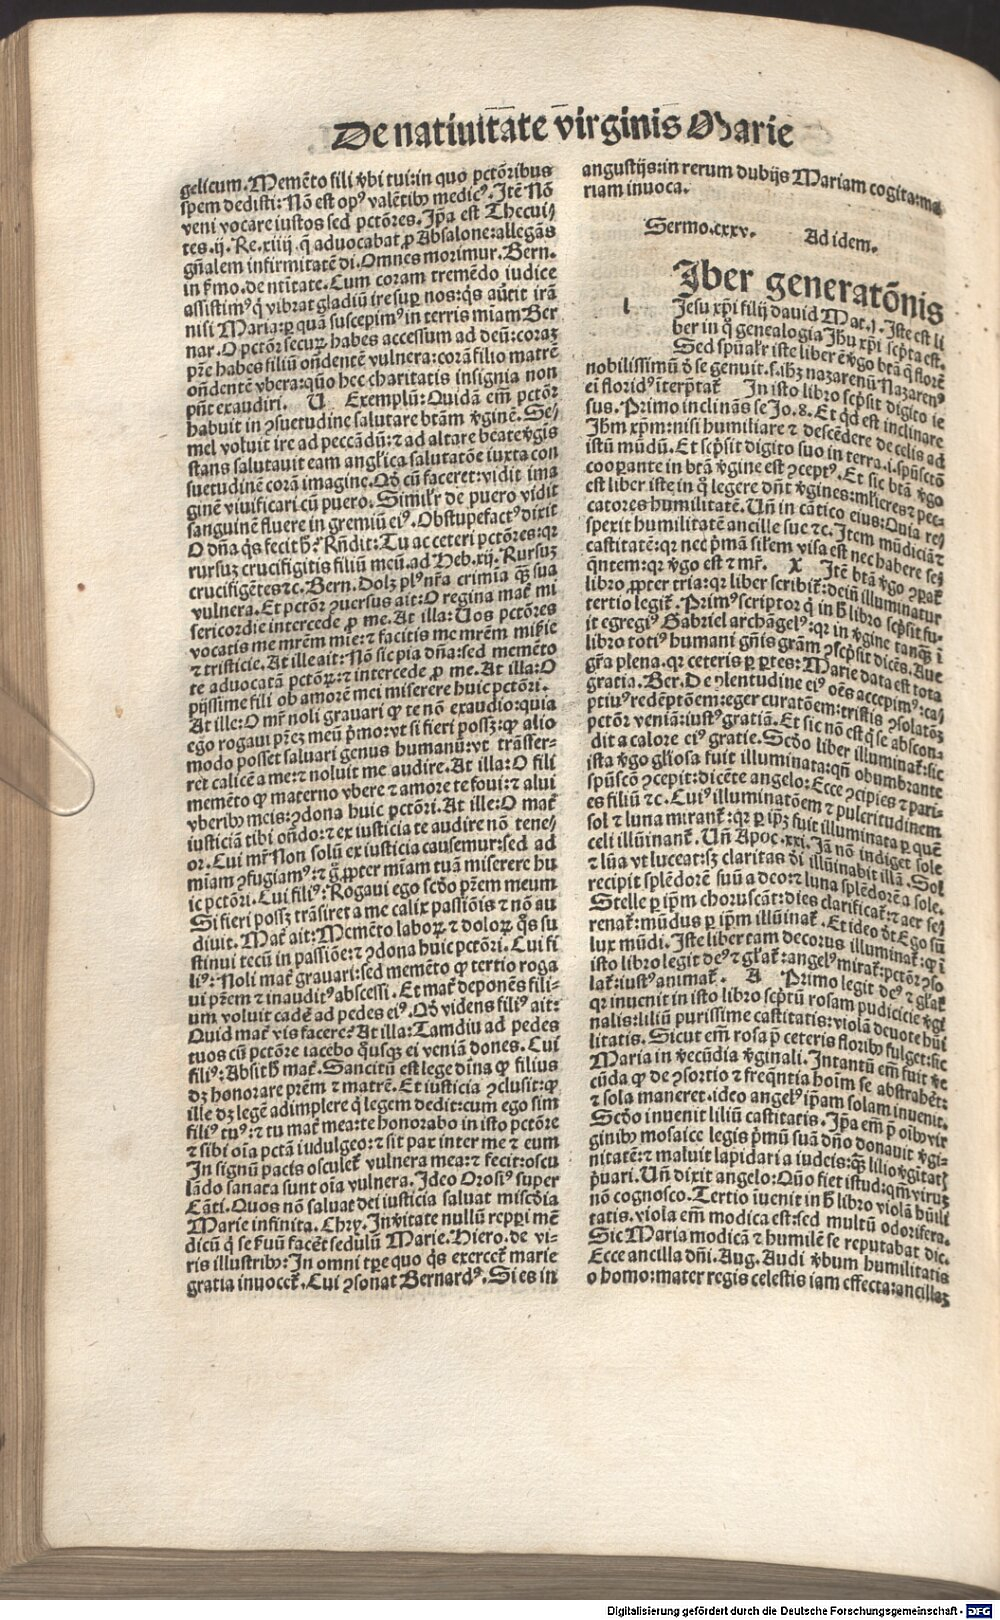 De natiuitate virginis Marie
gelicum. Memēto fili v̄bi tui: in quo pctōribus
spem dedisti: Nō est opꝰ valētibꝰ medicꝰ. Itē Nō
veni vocare iustos sed pctōres. Ip̄a est Thecui/
tes .ij. Re. xiiij q̄ aduocabat ꝓ Absalone: allegās
gn̄alem infirmitatē di. Omnes morimur. Bern.
in s̄mo. de ntitate. Cum coram tremēdo iudice
assistimꝰ q̄ vibrat gladiū ire suꝑ nos: q̄s auertit irā
nisi Maria: ꝑ quā suscepimꝰ in terris miam Ber
nar. O pctōr securꝰ habes accessum ad deū: coraꝫ
pr̄e habes filiū on̄dentē vulnera: corā filio matrē
on̄dentē vbera: quō hec charitatis insignia non
pn̄t exaudiri. U Exemplū: Quidā em̄ pctōr
habuit in ꝯsuetudine salutare btām v̄ginē. Se/
mel voluit ire ad peccādū: ⁊ ad altare beate v̄gis
stans salutauit eam angl̓ica salutatōe iuxta con
suetudinē corā imagine. Qd̓ cū faceret: vidit ima
ginē viuificari cū puero. Simil̓r de puero vidit
sanguinē fluere in gremiū eiꝰ. Obstupefactꝰ dixit
O dn̄a q̄s fecit h̄? Rn̄dit: Tu ac ceteri pctōres: qr
rursuꝫ crucifigitis filiū meū. ad Heb. xij. Rursuꝫ
crucifigētes ⁊c. Bern. Dolꝫ plꝰ nr̄a crimia qꝫ sua
vulnera. Et pctōr ꝯuersus ait: O regina mat̄ mi
sericordie intercede ꝓ me. At illa: Uos pctōres
vocatis me mrēm mie: ⁊ facitis me mrēm misēie
⁊ tristicie. At ille ait: Nō sic pia dn̄a: sed memēto
te aduocatā pctōrꝝ: ⁊ intercede ꝓ me. At illa: O
pijssime fili ob amorē mei miserere huic pctōri.
At ille: O mr̄ noli grauari ꝙ te nō exaudio: quia
ego rogaui prēꝫ meū p̄mo: vt si fieri possꝫ: ꝙ alio
modo posset saluari genus humanū: vt trāsfer-
ret calicē a me: ⁊ noluit me audire. At illa: O fili
memēto ꝙ materno vbere ⁊ amore te foui: ⁊ alui
vberibꝰ meis: ꝯdona huic pctōri. At ille: O mat̄
iusticiā tibi on̄do: ⁊ ex iusticia te audire nō tene/
or. Cui mr̄ Non solū ex iusticia causemur: sed ad
miam ꝯfugiamꝰ: ⁊ g̊ ꝓpter miam tuā miserere hu
ic pctōri. Cui filiꝰ: Rogaui ego scd̓o prēm meum
Si fieri possꝫ trāsiret a me calix passiōis ⁊ nō au
diuit. Mat̄ ait: Memēto laborꝝ ⁊ dolorꝝ q̄s su
stinui tecū in passiōe: ⁊ ꝯdona huic pctōri. Cui fi
liꝰ: Noli mat̄ grauari: sed memēto ꝙ tertio roga
ui prēm ⁊ inauditꝰ abscessi. Et mat̄ deponēs fili-
um voluit cadē ad pedes eiꝰ. Qd̓ videns filiꝰ ait:
Quid mat̄ vis facere? At illa: Tamdiu ad pedes
tuos cū pctōre iacebo q̄usqꝫ ei veniā dones. Cui
filiꝰ: Absit h̄ mat̄. Sancitū est lege diuīa ꝙ filius
dꝫ honorare prēm ⁊ matrē. Et iusticia ꝯclusit: ꝙ
ille dꝫ legē adimplere q̄ legem dedit: cum ego sim
filiꝰ tuꝰ: ⁊ tu mat̄ mea: te honorabo in isto pctōre
⁊ sibi oīa pctā īdulgeo: ⁊ sit pax inter me ⁊ eum
In signū pacis osculet̄ vulnera mea: ⁊ fecit: oscu
lādo sanata sunt oīa vulnera. Ideo Orosiꝰ super
Cāti. Quos nō saluat dei iusticia saluat miscd̓ia
Marie infinita. Chry. In v̄itate nullū repperi mē
dicū q̄ se s̄uū facēt sedulū Marie. Hiero. de vi-
ris illustribꝰ: In omni tp̄re quo q̄s exercet̄ marie
gratia inuocet̄. Cui ꝯsonat Bernardꝰ. Si es in
angustijs: in rerum dubijs Mariam cogita: ma
riam inuoca.
Sermo. cxxv. Ad idem.
l
Iber generatōnis
Jesu xp̄i filij dauid Mat. j. Iste est li
ber in q̄ genealogia Jhū xp̄i scp̄ta est.
Sed spūal̓r iste liber ē v̄go btā q̄ florē
nobilissimū d̓ se genuit. s. ihꝫ nazarenū Nazarenꝰ
ei floridꝰ iterp̄tat̄ In isto libro scp̄sit digito ie
sus. Primo inclināns se Jo. 8. Et qd̓ est inclinare
Jhm xp̄m: nisi humiliare ⁊ descēdere de celis ad
istū mūdū. Et scp̄sit digito suo in terra. i. spūscto̅
cooꝑante in btā v̄gine est ꝯceptꝰ. Et sic btā v̄go
est liber iste in q̄ legere dn̄t v̄gines: ml̓ieres ⁊ pec-
catores humilitatē. Un̄ in cātico eius: Quia re/
spexit humilitatē ancille sue ⁊c. Item mūdiciā ⁊
castitatē: qr nec p̄mā sil̓em visa est nec habere se/
q̄ntem: qr v̄go est ⁊ mr̄. X Itē btā v̄go ꝯꝑat̄
libro ꝓpter tria: qr liber scribit̄: deiū illuminatur
tertio legit̄. Primꝰ scriptor q̄ in h̄ libro scp̄sit fu-
it egregiꝰ Gabriel archāgelꝰ: qr in v̄gine tanqꝫ ī
libro totiꝰ humani gn̄is grām ꝯscp̄sit dicēs. Aue
grā plena. qr ceteris ꝑ ptes: Marie data est tota
gratia. Ber. De plenitudine eiꝰ oēs accepimꝰ: ca/
ptiuꝰ redēptōem: eger curatōem: tristis ꝯsolatōꝫ
pctōr veniā: iustꝰ gratiā. Et sic nō est q̄ se abscon-
dit a calore eiꝰ gratie. Scd̓o liber illuminat̄: sic
ista v̄go gl̓iosa fuit illuminata: qn̄ obumbrante
spūsco̅ ꝯcepit: dicēte angelo: Ecce ꝯcipies ⁊ pari-
es filiū ⁊c. Cuiꝰ illuminatōem ⁊ pulcritudinem
sol ⁊ luna mirant̄: qr ꝑ ip̄ꝫ fuit illuminata ꝑ quē
celi illūinant̄. Un̄ Apoc. xxi. Jā nō indiget sole
⁊ lūa vt luceat: sꝫ claritas d̓i illūinabit illā. Sol
recipit splēdorē suū a deo: ⁊ luna splēdorē a sole.
Stelle ꝑ ip̄m choruscāt: dies clarificat̄: ⁊ aer se/
renat̄: mūdus ꝑ ip̄m illūinat̄. Et ideo d̓t Ego sū
lux mūdi. Iste liber tam decorus illuminat̄: ꝙ ī
isto libro legit deꝰ ⁊ gl̓at̄: angelꝰ mirat̄: pctōr ꝯso
lat̄: iustꝰ animat̄. A Primo legit deꝰ ⁊ gl̓at̄
qr inuenit in isto libro scp̄tū rosam pudicicie v̄gi
nalis: liliū purissime castitatis: violā deuote hūi
litatis. Sicut em̄ rosa p̄ ceteris floribꝰ fulget: sic
Maria in v̄ecūdia v̄ginali. Intantū em̄ fuit ve
cūda ꝙ de ꝯsortio ⁊ freq̄ntia hoīm se abstrahēt:
⁊ sola maneret. ideo angelꝰ ip̄am solam inuenit.
Scd̓o inuenit liliū castitatis. Ip̄a em̄ p̄ oībꝰ vir
ginibꝰ mosaice legis p̄mū suā dn̄o donauit v̄gi-
nitatē: ⁊ maluit lapidari a iudeis: qꝫ lilio v̄gitatꝭ
p̄uari. Un̄ dixit angelo: Quō fiet istud: qm̄ viruꝫ
nō cognosco. Tertio iuenit in h̄ libro violā hūili
tatis. viola em̄ modica est: sed multū odorifera.
Sic Maria modicā ⁊ humilē se reputabat dic.
Ecce ancilla dn̄i. Aug. Audi v̄bum humilitatis
o homo: mater regis celestis iam effecta: ancillaꝫ
Digitalisierung gefördert durch die Deutsche Forschungsgemeinschaft - DFG